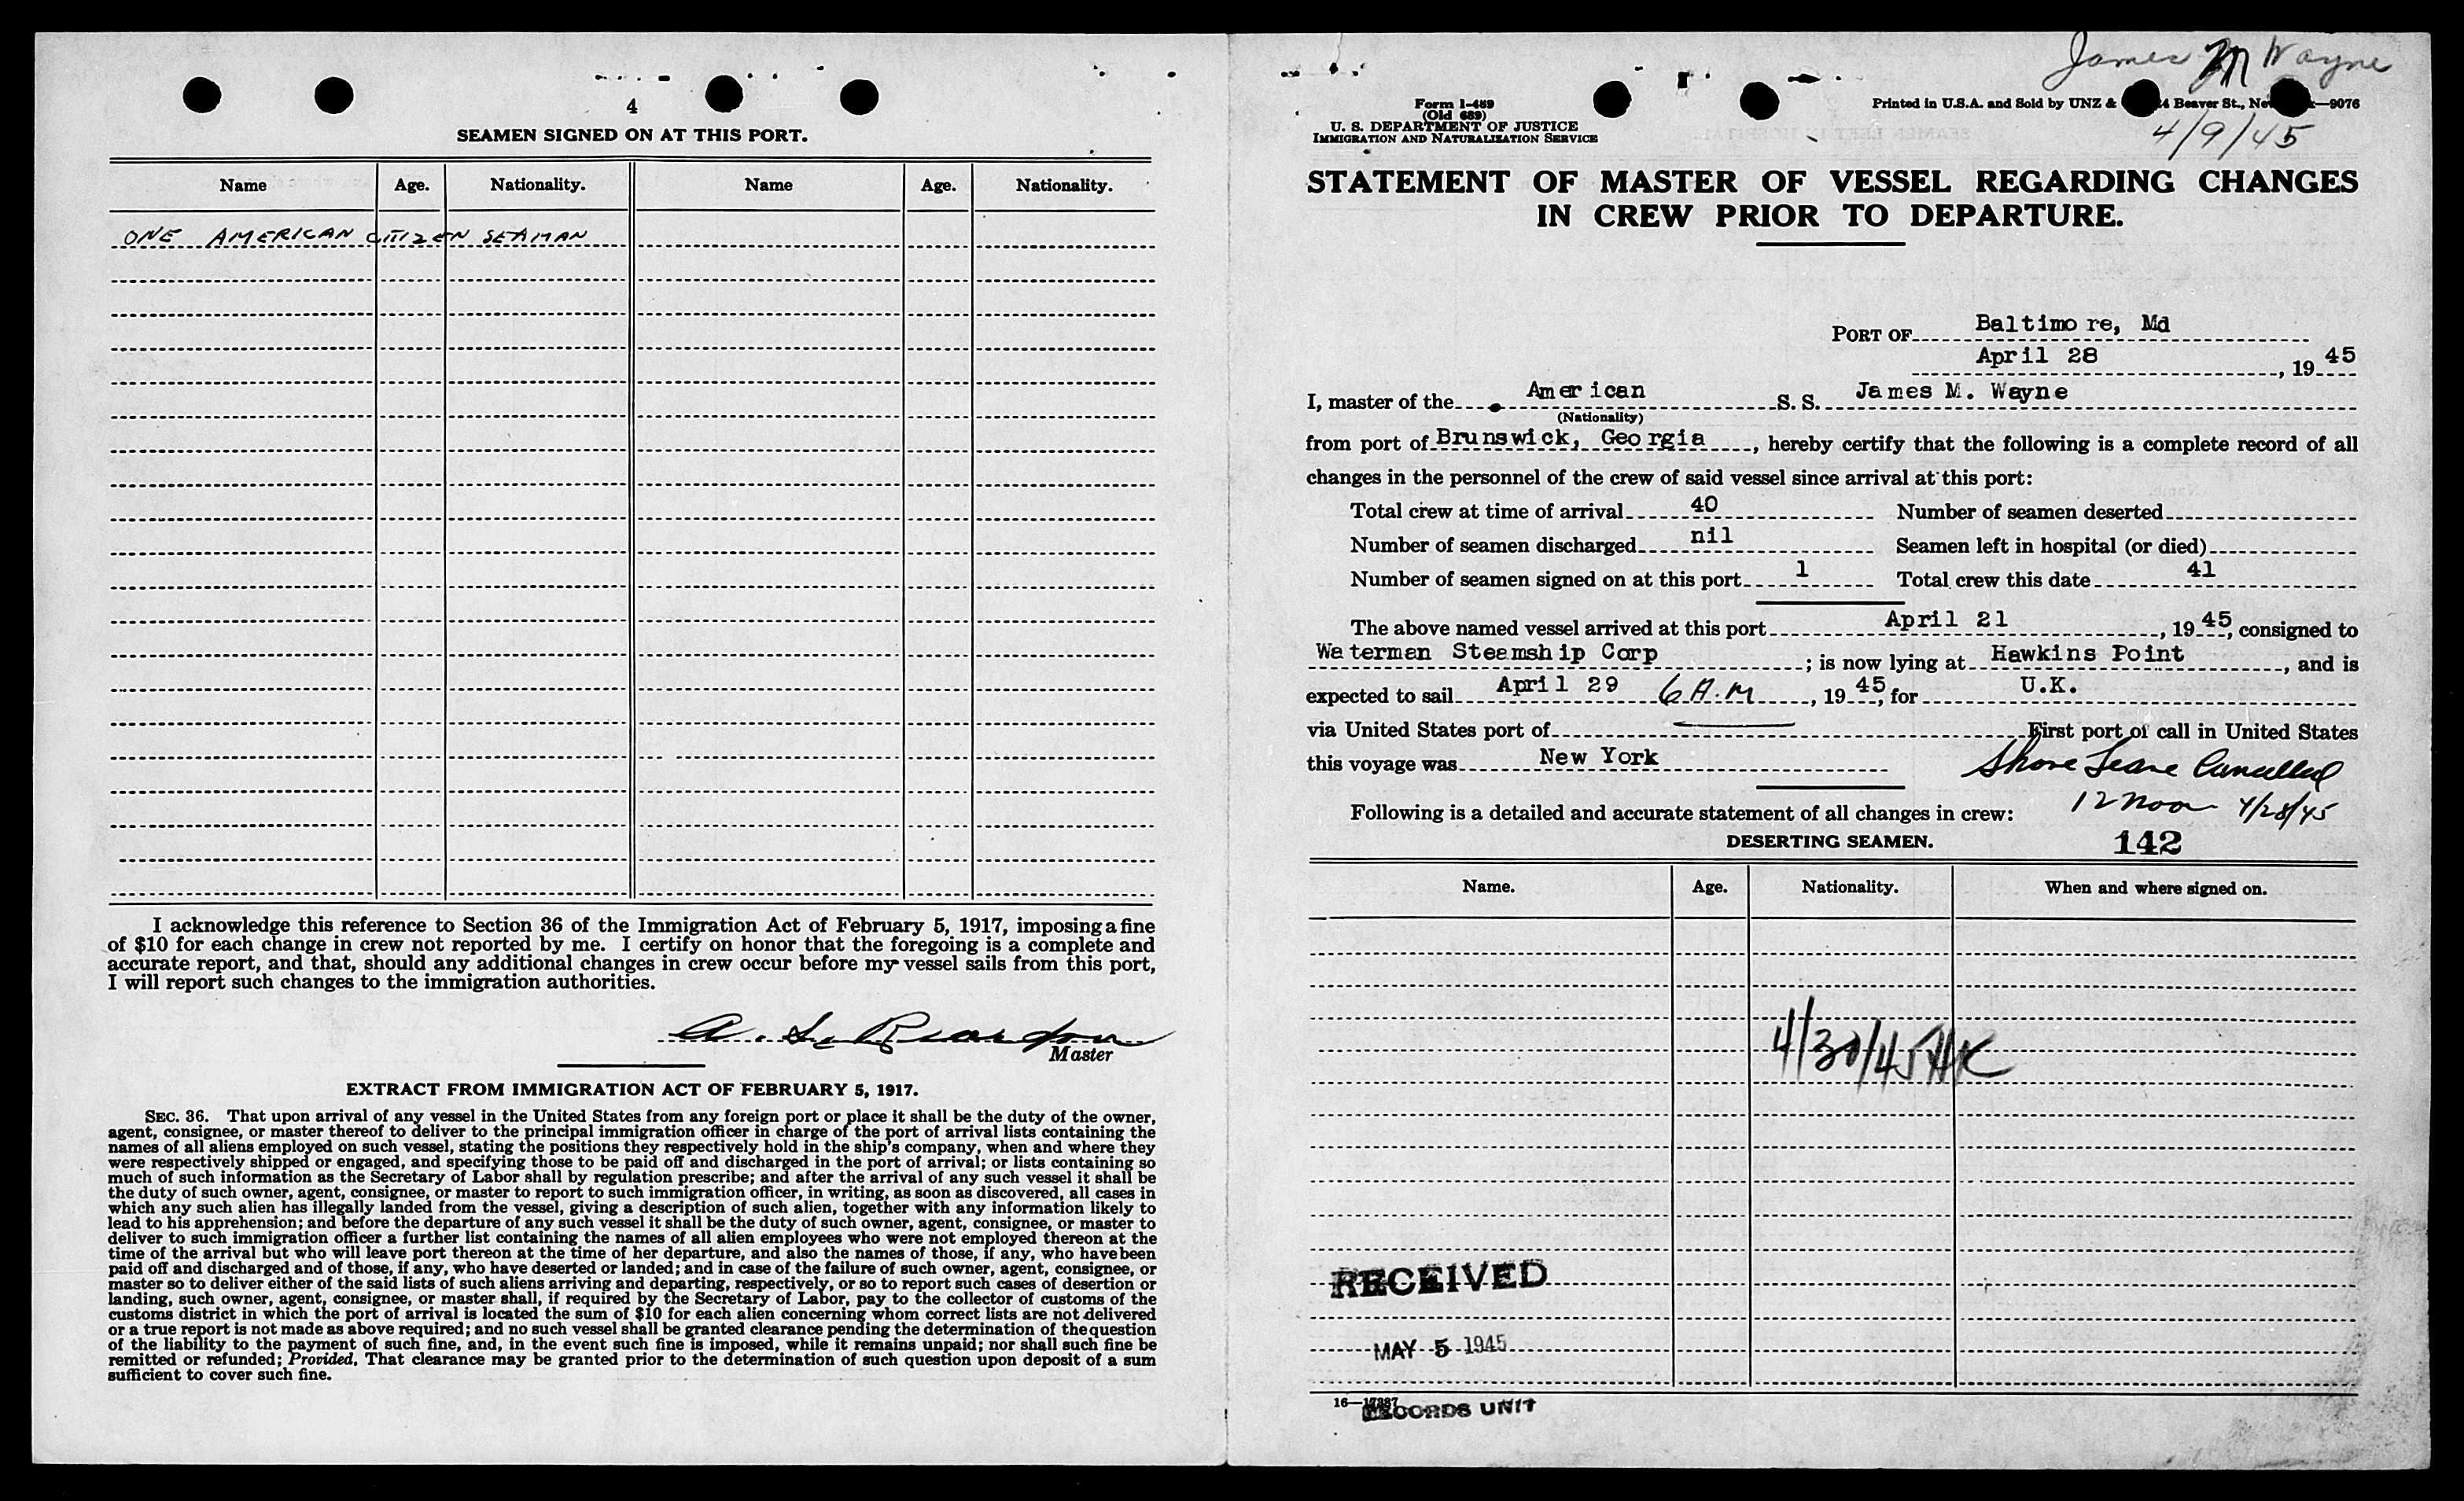 4
SEAMEN SIGNED ON AT THIS PORT.
Name Age. Nationality. Name Age. Nationality.
ONE AMERICAN CITIZEN SEAMAN
I acknowledge this reference to Section 36 of the Immigration Act of February 5, 1917, imposing a fine
of $10 for each change in crew not reported by me. I certify on honor that the foregoing is a complete and
accurate report, and that, should any additional changes in crew occur before my vessel sails from this port,
I will report such changes to the immigration authorities.
Master
EXTRACT FROM IMMIGRATION ACT OF FEBRUARY 5, 1917.
SEC. 36. That upon arrival of any vessel in the United States from any foreign port or place it shall be the duty of the owner,
agent, consignee, or master thereof to deliver to the principal immigration officer in charge of the port of arrival lists containing the
names of all aliens employed on such vessel, stating the positions they respectively hold in the ship's company, when and where they
were respectively shipped or engaged, and specifying those to be paid off and discharged in the port of arrival; or lists containing so
much of such information as the Secretary of Labor shall by regulation prescribe; and after the arrival of any such vessel it shall be
the duty of such owner, agent, consignee, or master to report to such immigration officer, in writing, as soon as discovered, all cases in
which any such alien has illegally landed from the vessel, giving a description of such alien, together with any information likely to
lead to his apprehension; and before the departure of any such vessel it shall be the duty of such owner, agent, consignee, or master to
deliver to such immigration officer a further list containing the names of all alien employees who were not employed thereon at the
time of the arrival but who will leave port thereon at the time of her departure, and also the names of those, if any, who have been
paid off and discharged and of those, if any, who have deserted or landed; and in case of the failure of such owner, agent, consignee, or
master so to deliver either of the said lists of such aliens arriving and departing, respectively, or so to report such cases of desertion or
landing, such owner, agent, consignee, or master shall, if required by the Secretary of Labor, pay to the collector of customs of the
customs district in which the port of arrival is located the sum of $10 for each alien concerning whom correct lists are not delivered
or a true report is not made as above required; and no such vessel shall be granted clearance pending the determination of the question
of the liability to the payment of such fine, and, in the event such fine is imposed, while it remains unpaid; nor shall such fine be
remitted or refunded; Provided, That clearance may be granted prior to the determination of such question upon deposit of a sum
sufficient to cover such fine.
James M Wayne
Form I-489
(Old 689)
U. S. DEPARTMENT OF JUSTICE
IMMIGRATION AND NATURALIZATION SERVICE
Printed in U.S.A. and Sold by UNZ & Beaver St., —9076
4/9/45
STATEMENT OF MASTER OF VESSEL REGARDING CHANGES
IN CREW PRIOR TO DEPARTURE.
PORT OF Baltimore, Md
April 28, 1945
I, master of the American S. S. James M. Wayne
(Nationality)
from port of Brunswick, Georgia, hereby certify that the following is a complete record of all
changes in the personnel of the crew of said vessel since arrival at this port:
Total crew at time of arrival 40 Number of seamen deserted
Number of seamen discharged nil Seamen left in hospital (or died)
Number of seamen signed on at this port 1 Total crew this date 41
The above named vessel arrived at this port April 21, 1945, consigned to
Waterman Steamship Corp; is now lying at Hawkins Point, and is
expected to sail April 29 6 A.M, 1945, for U.K.
via United States port of First port of call in United States
this voyage was New York
Shore Leave Cancelled
12 Noon 4/28/45
Following is a detailed and accurate statement of all changes in crew:
DESERTING SEAMEN. 142
Name. Age. Nationality. When and where signed on.
4/30/45
RECEIVED
MAY 5 1945
16—
RECORDS UNIT